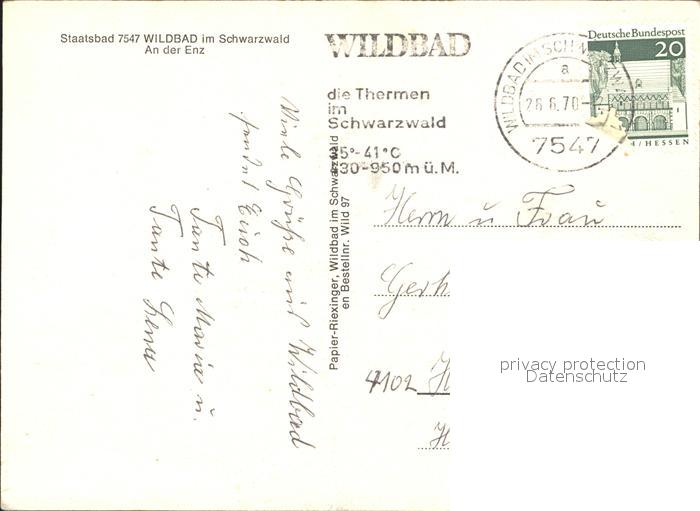 Staatsbad 7547 WILDBAD im Schwarzwald
An der Enz
WILDBAD
die Thermen
im
Schwarzwald
35°-41°C
430-950m ü.M.
WILDBAD IM SCHWARZWALD
a
26.6.70
7547
Deutsche Bundespost
20
/HESSEN
Viele Grüße aus Wildbad
sendet Euch
Tante Maria u.
Tante Lena
Papier-Riexinger, Wildbad im Schwarzwald
en Bestellnr. Wild 97
Herrn u Frau
Gerh
4102 H
H
privacy protection
Datenschutz